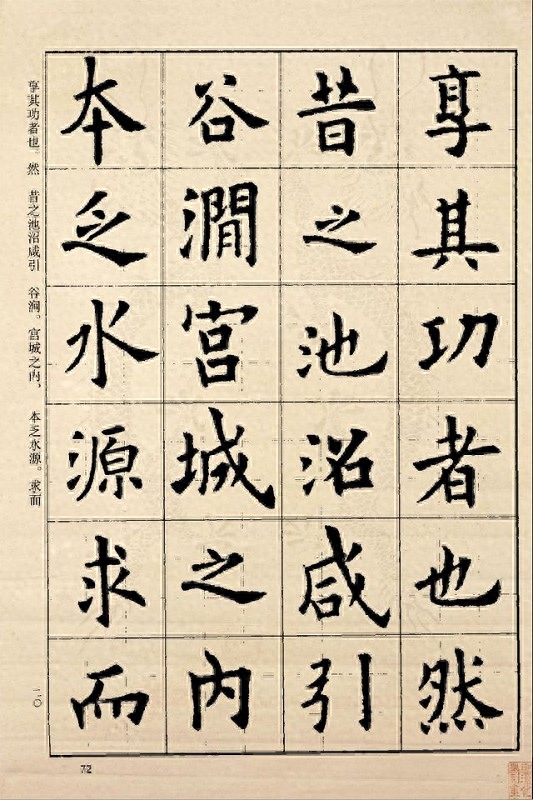 享其功者也然
昔之池沼咸引
谷澗宫城之内
本乏水源求而
享其功者也。然 昔之池沼咸引 谷涧。宫城之内、 本乏水源。求而
二〇
72